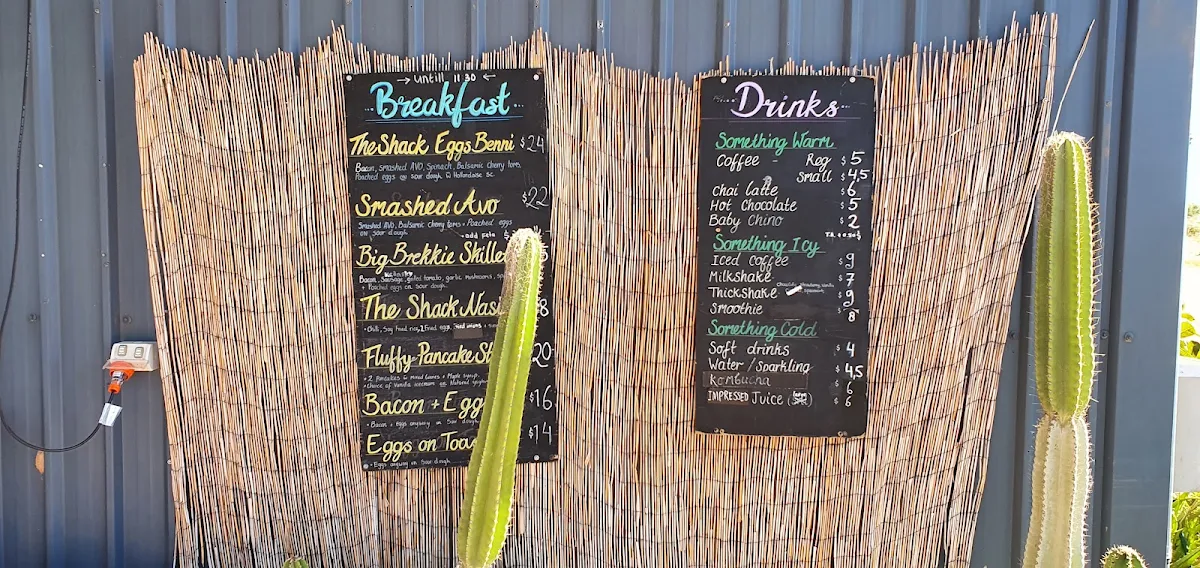 → Untill 11 30 ←
Breakfast
The Shack Eggs Benni $24
Bacon, smashed AVO, Spinach, Balsamic cherry toms,
Poached eggs on sour dough,
Smashed Avo $22
Smashed AVO, Balsamic cherry toms + Poached eggs
on sour dough
- add Feta
Big Brekkie Skille
Bacon, Sausage, grilled tomato, garlic mushrooms,
+ Poached eggs on sour dough.
The Shack Nasi 8
Fluffy Pancake St 20
• 2 Pancakes
• Choice of Vanilla icecream or Natural yoghurt
Bacon + Egg $16
• Bacon + eggs anyway on sour dough
Eggs on Toa $14
• Eggs anyway on sour dough
Drinks
Something Warm
Coffee - Reg $5
Small $4,5
Chai latte $6
Hot Chocolate $5
Baby Chino $2
Something Icy
Iced Coffee $9
Milkshake $7
Thickshake $9
Smoothie $8
Something Cold
Soft drinks $4
Water / Sparkling $4,5
Kombucha $6
IMPRESSED Juice $6